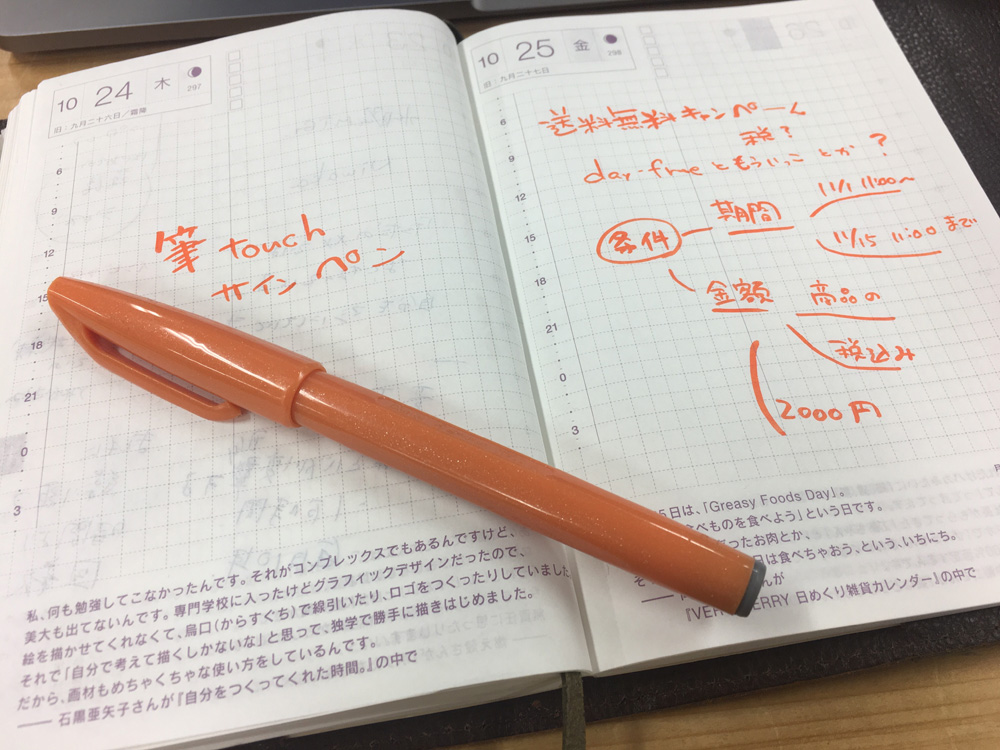 10 24 木 297
旧:九月二十六日/霜降
6
9
12
15
18
21
0
3
筆touch
サインペン
私、何も勉強してこなかったんです。それがコンプレックスでもあるんですけど、
美大も出てないんです。専門学校に入ったけどグラフィックデザインだったので、
絵を描かせてくれなくて、烏口(からすぐち)で線引いたり、ロゴをつくったりしていました
それで「自分で考えて描くしかないな」と思って、独学で勝手に描きはじめました。
だから、画材もめちゃくちゃな使い方をしているんです。
―― 石黒亜矢子さんが『自分をつくってくれた時間。』の中で
10 25 金 298
旧:九月二十七日
6
9
12
15
18
21
0
3
送料無料キャンペーン
税?
day-freeともういっことか?
条件
期間
11/1 11:00〜
11/15 11:00まで
金額 商品の
税込み
2000円
5日は、「Greasy Foods Day」。
食べものを食べよう」という日です。
ったお肉とか、
日は食べちゃおう、という、いちにち。
んが
『VE RRY 日めくり雑貨カレンダー』の中で